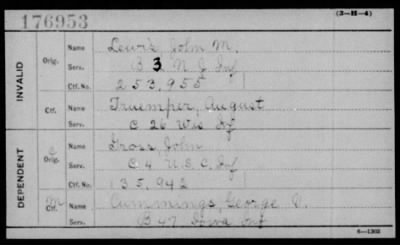 (3-H-4)
176953
INVALID
Orig.
Name Lewis, John M.
Serv. B 3 N J Inf
Ctf. No. 253,955
Ctf.
Name Truemper, August
Serv. C 26 Wis Inf
DEPENDENT
C
Orig.
Name Gross, John
Serv. C 4 U.S.C. Inf
Ctf. No. 135,942
M
Ctf.
Name Cummings, George D.
Serv. B 47 Iowa Inf
6-1302